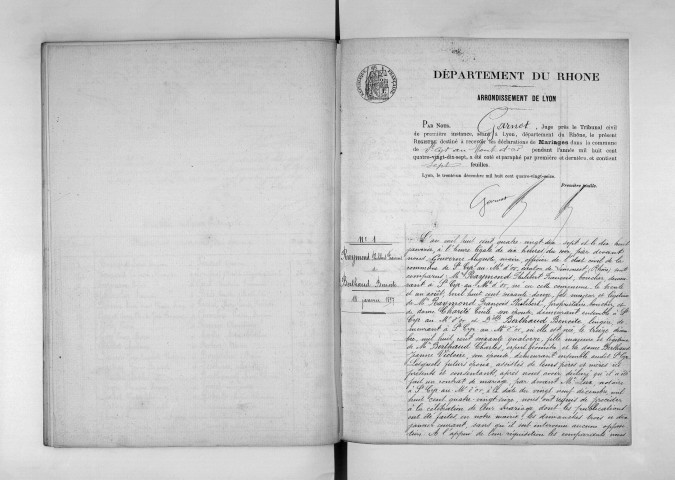 DÉPARTEMENT DU RHONE
ARRONDISSEMENT DE LYON
PAR NOUS, Garnot, Juge près le Tribunal civil
de première instance, séant à Lyon, département du Rhône, le présent
REGISTRE destiné à recevoir les déclarations de Mariages dans la commune
de St Cyr au Mont d'or pendant l'année mil huit cent
quatre-vingt-dix-sept, a été coté et paraphé par première et dernière, et contient
sept feuilles.
Lyon, le trente-un décembre mil huit cent quatre-vingt-seize.
Première feuille.
Garnot
N° 1
Raymond Philibert François
&
Berthaud Benoite
18 janvier 1897
L'an mil huit cent quatre vingt dix sept et le dix huit
janvier, à l'heure légale de six heures du soir, par devant
nous Gouverne Auguste maire, officier de l'état civil de la
commune de St Cyr au Mt d'or, canton de Limonest, Rhône, ont
comparu: Mr Raymond Philibert François, boucher, demeu
rant à St Cyr au Mt d'or, né en cette commune le trente
et un août, mil huit cent soixante douze, fils majeur et légitime
de Mr Raymond François Philibert, propriétaire boucher, et
de dame Charité Emilie son épouse, demeurant ensemble à St
Cyr au Mt d'or et Dlle Berthaud Benoite, lingère, de
meurant à St Cyr au Mt d'or, où elle est née le treize
mil huit cent soixante quatorze, fille majeure et légitime
de Mr Berthaud Charles, expert géomètre et de dame
Jeanne Victoire, son épouse demeurant ensemble audit St Cyr
Lesquels futurs époux, assistés de leurs pères et mères ici
présents et consentants, après nous avoir déclaré qu'il a été
fait un contrat de mariage par devant Me notaire
à St Cyr au Mt d'or, à la date du vingt neuf décembre mil
huit cent quatre vingt seize, nous ont requis de procéder
à la célébration de leur mariage dont les publications
ont été faites en notre mairie les dimanches trois et dix
janvier courant, sans qu'il soit intervenu aucune opposi
tion. A l'appui de leur réquisition les comparants nous